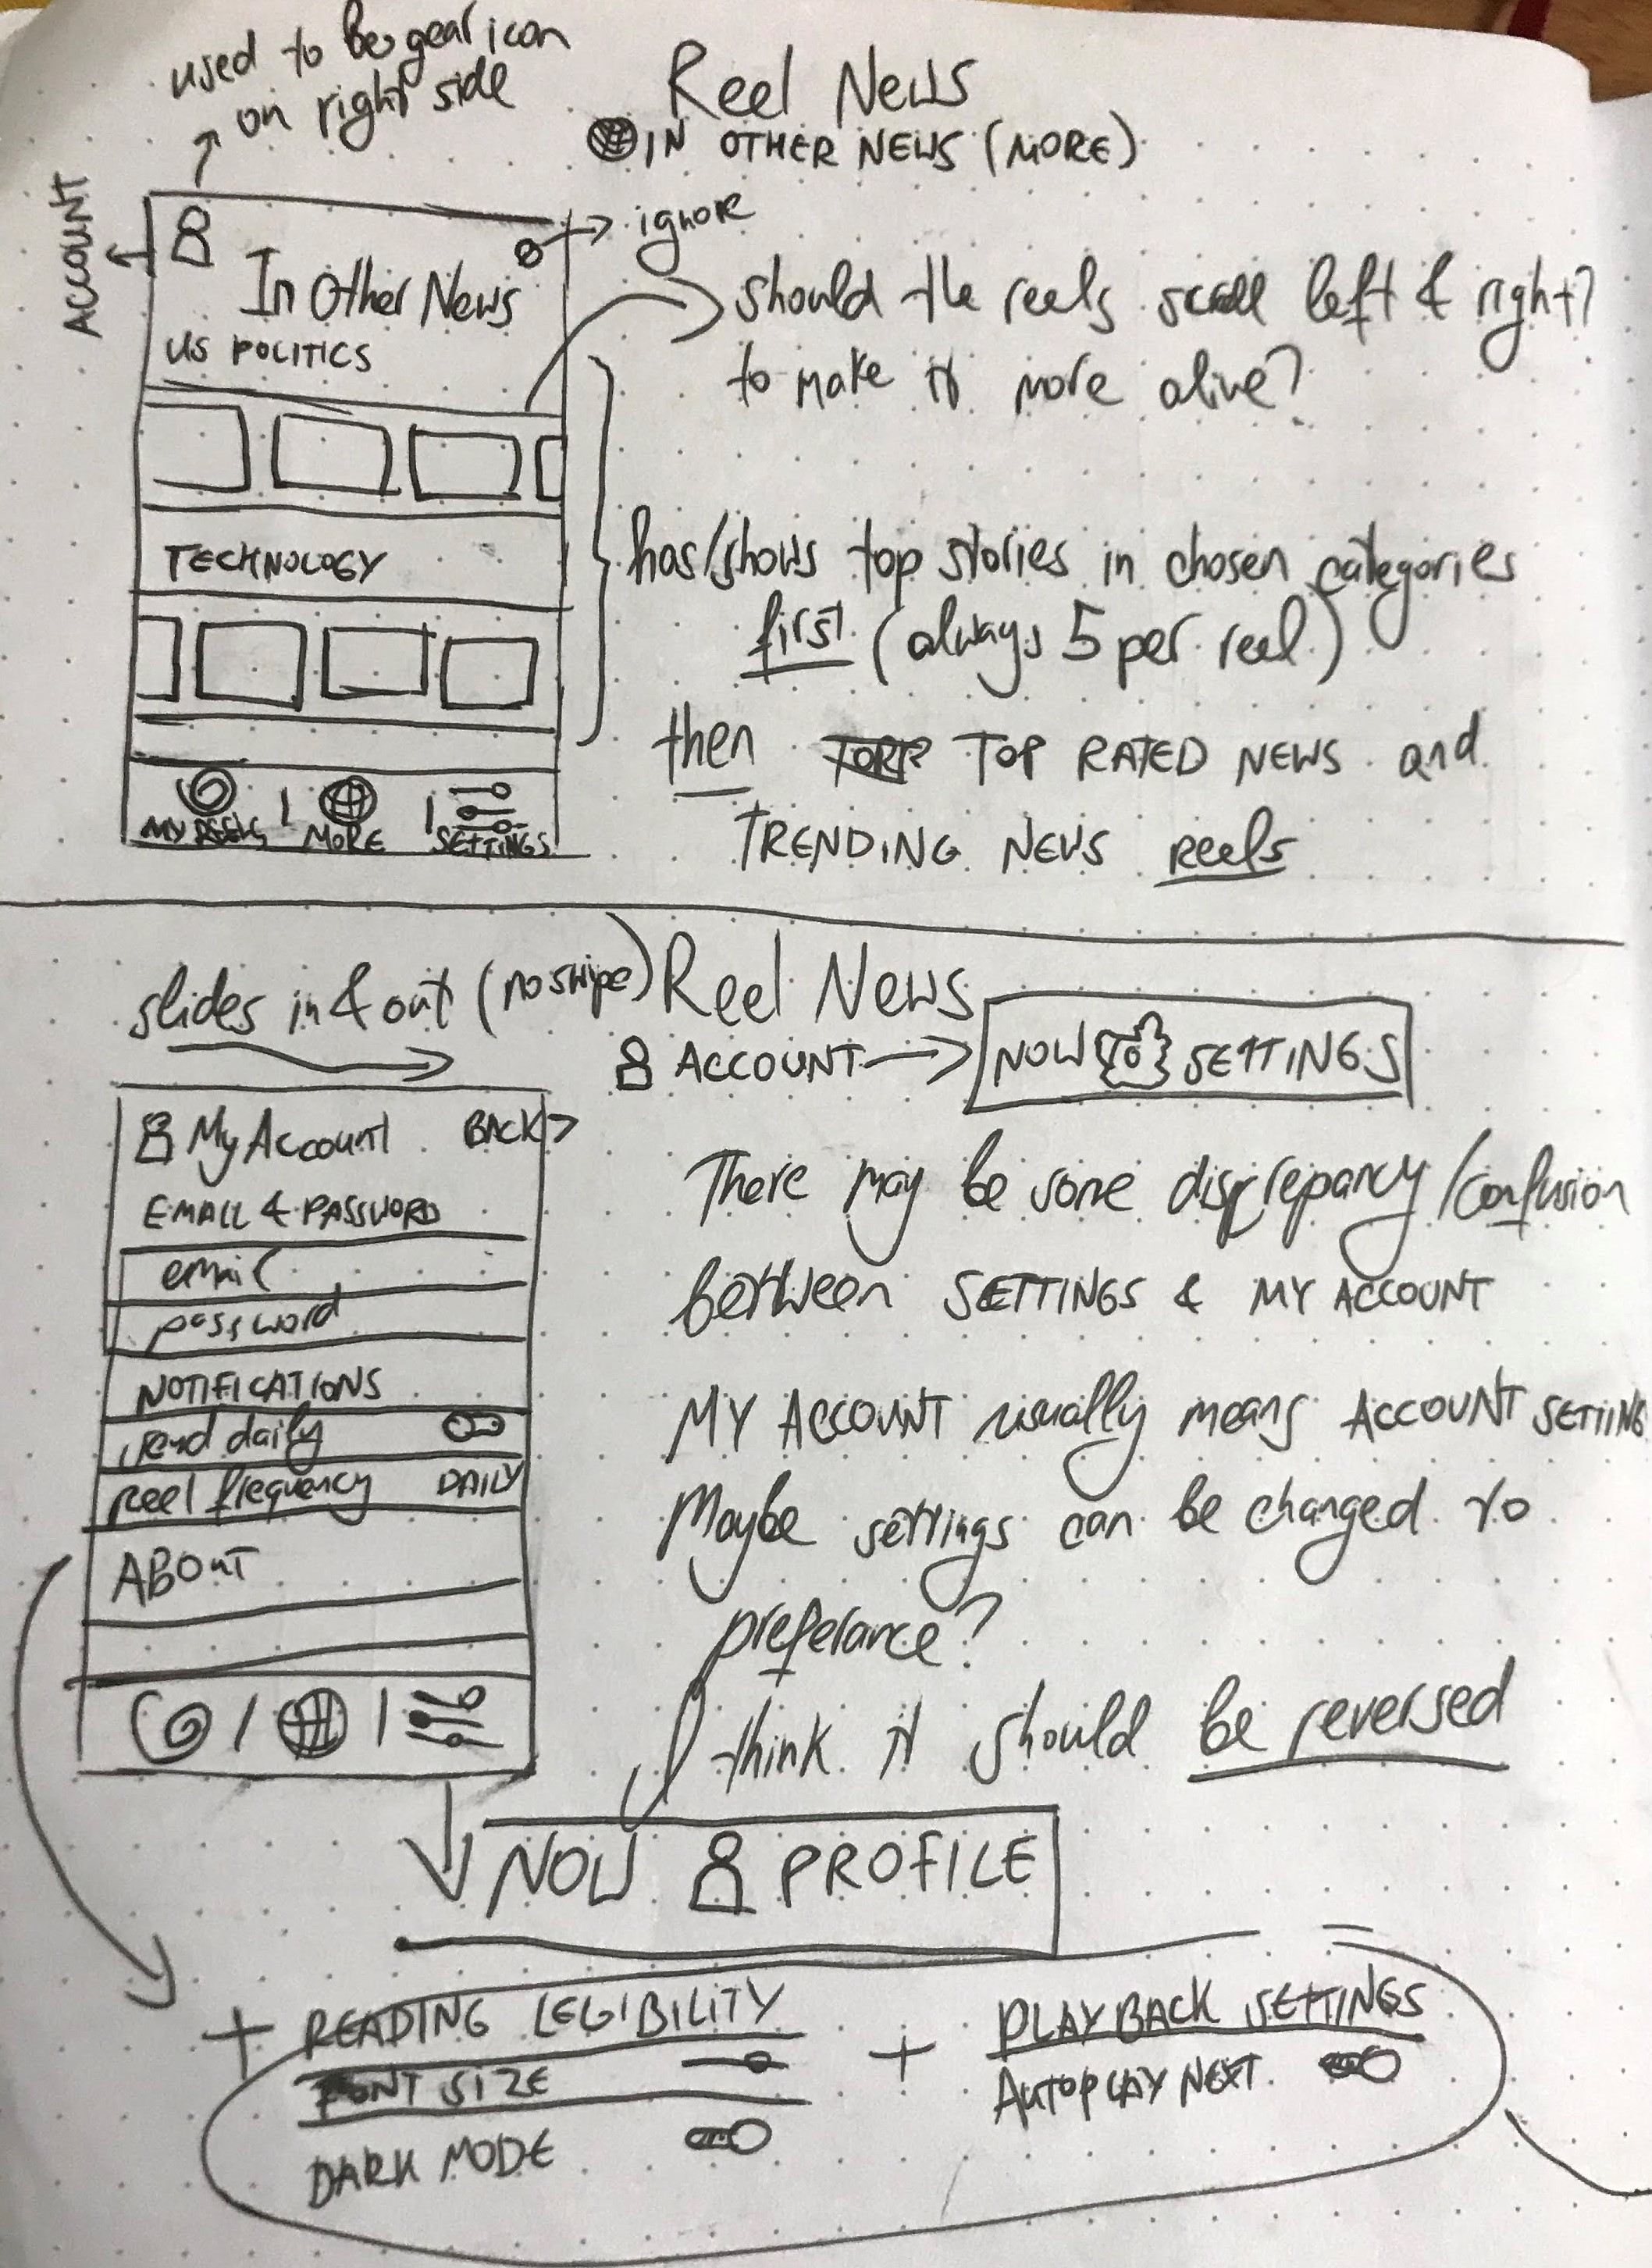 used to be gear icon
on right side
Reel News
IN OTHER NEWS (MORE)
ACCOUNT
ignore
In Other News
US POLITICS
should the reels scroll left & right?
to make it more alive?
TECHNOLOGY
has/shows top stories in chosen categories
first (always 5 per reel)
then TOP RATED NEWS and
TRENDING NEWS reels
MY REELS | MORE | SETTINGS
slides in & out (no swipe)
Reel News
ACCOUNT → NOW SETTINGS
My Account BACK >
EMAIL & PASSWORD
email
password
NOTIFICATIONS
send daily
reel frequency DAILY
ABOUT
There may be some discrepancy/confusion
between SETTINGS & MY ACCOUNT
MY ACCOUNT usually means ACCOUNT SETTING
Maybe settings can be changed to
preferance?
I think it should be reversed
NOW PROFILE
+ READING LEGIBILITY
FONT SIZE
DARK MODE
+ PLAYBACK SETTINGS
AUTOPLAY NEXT